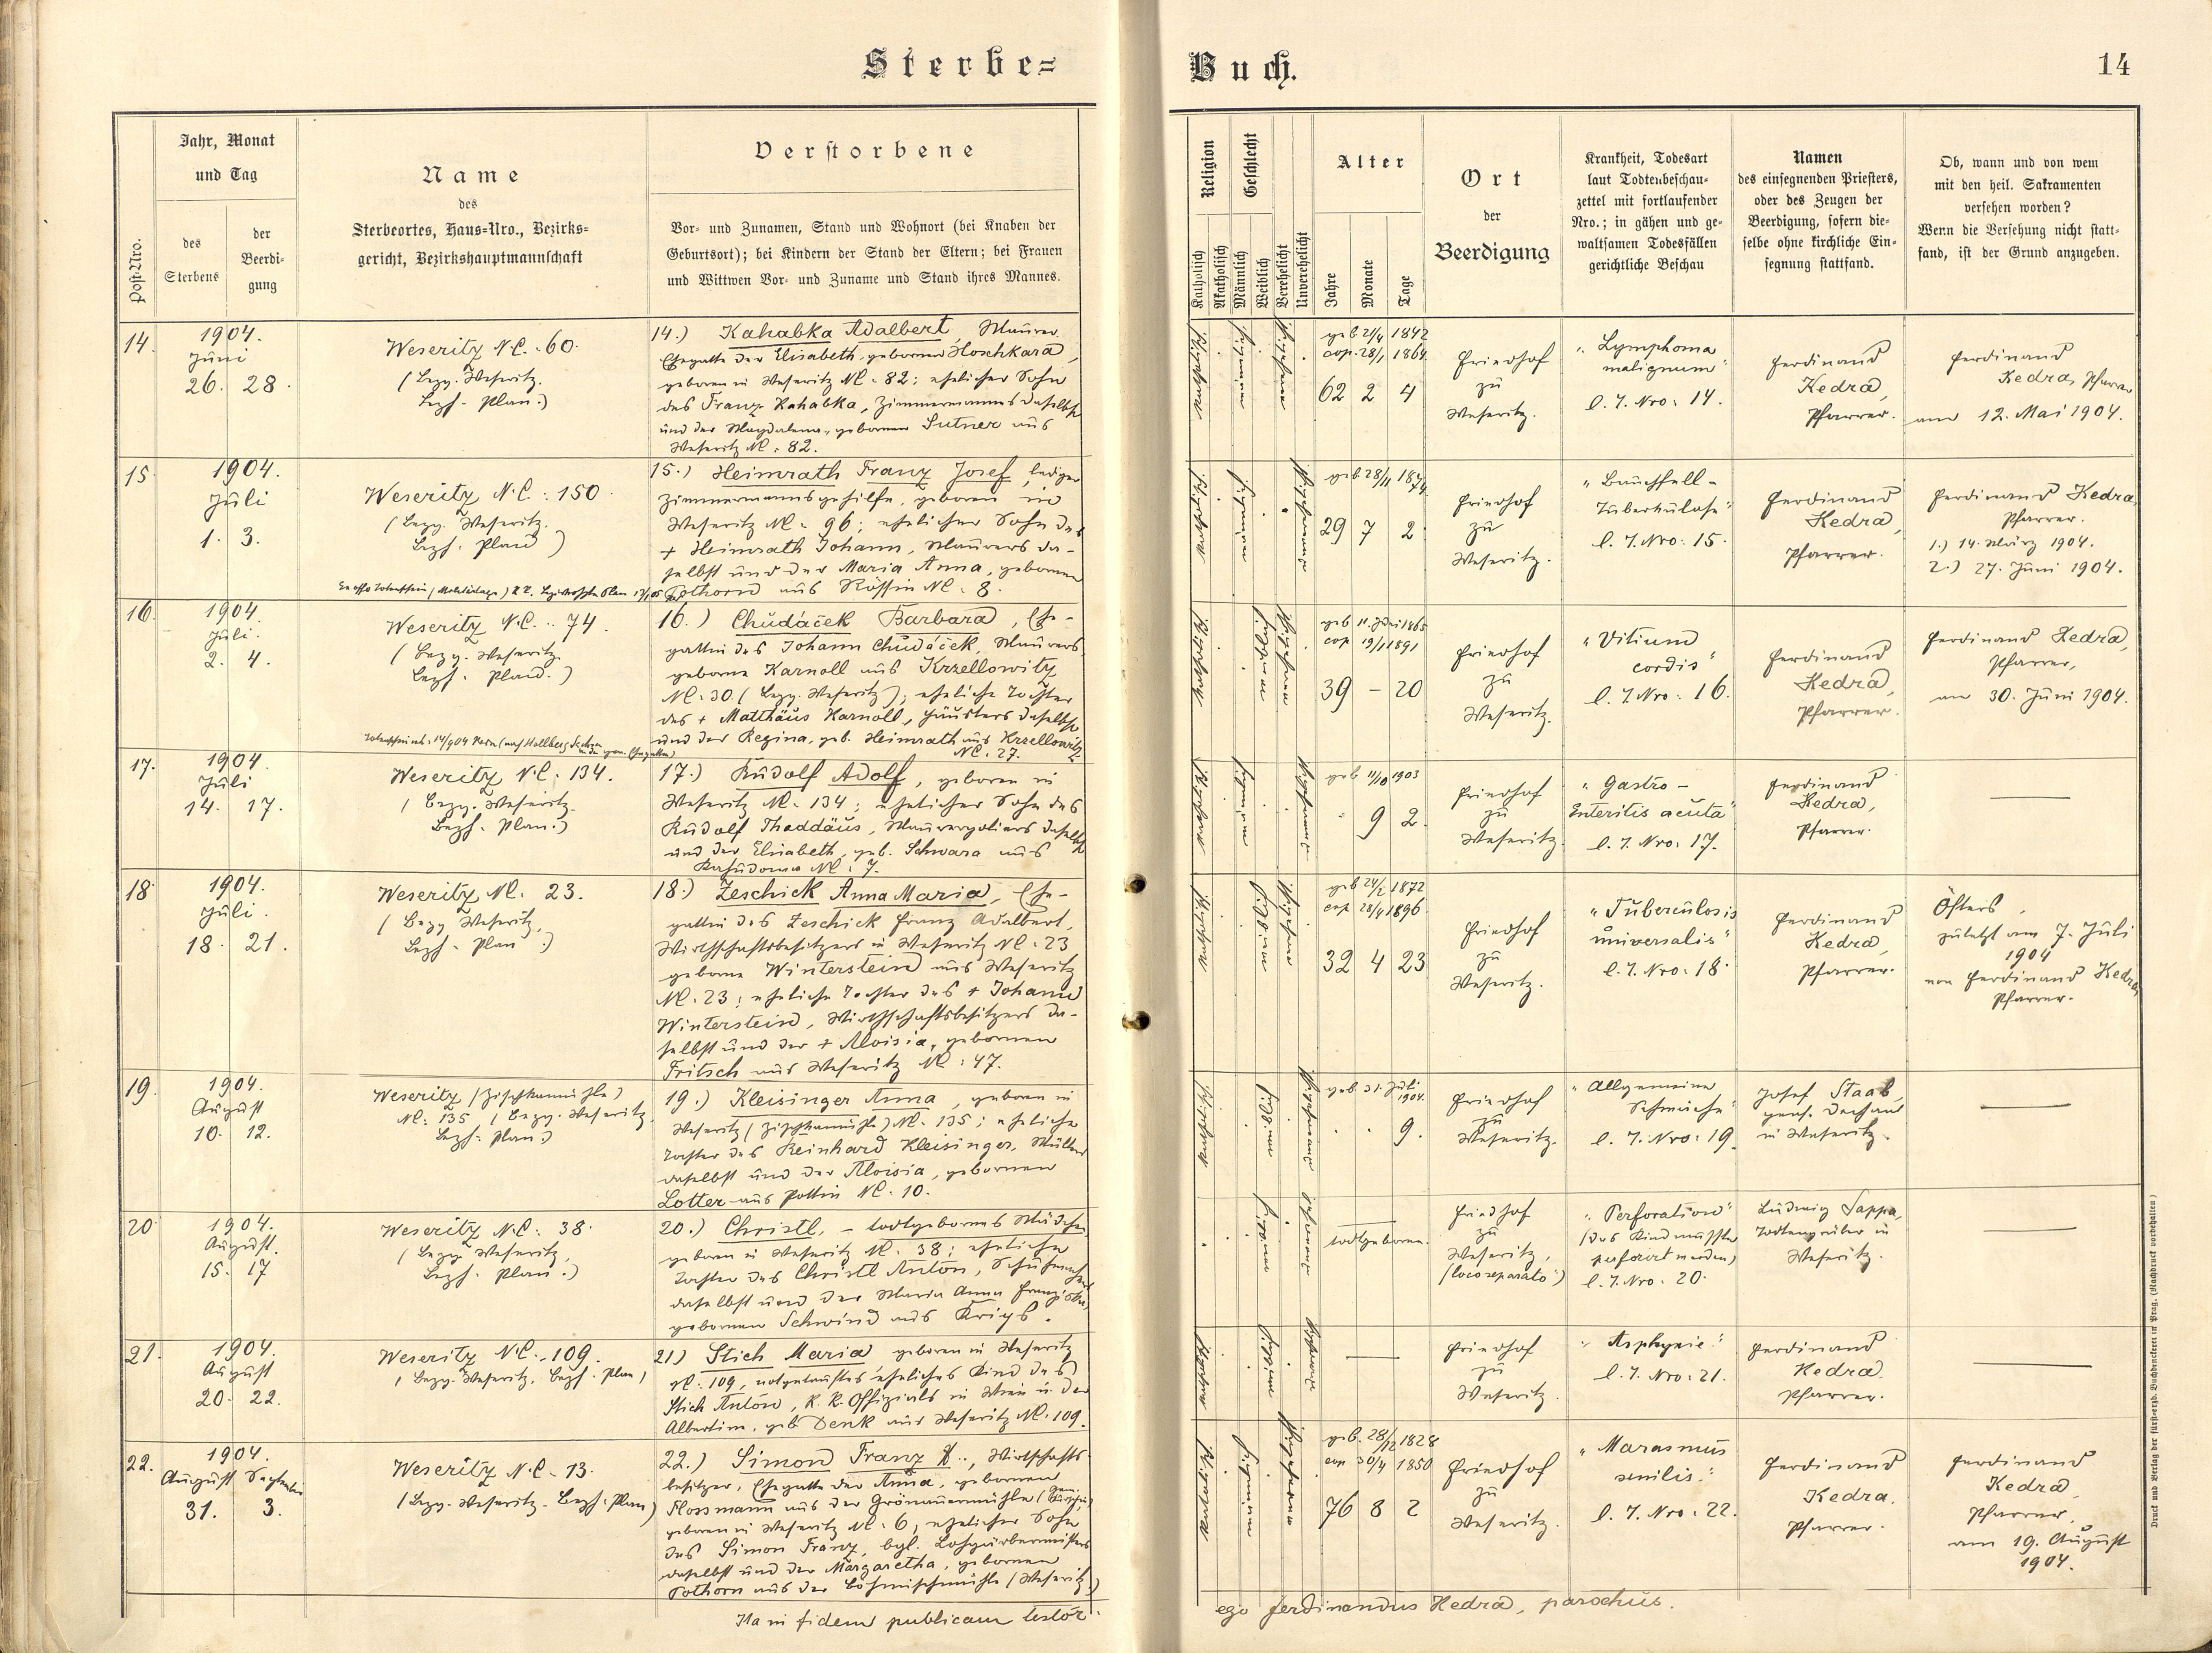 Sterbe=
Buch.
14
Post-Nro.
Jahr, Monat
und Tag
des
Sterbens
der
Beerdi-
gung
Name
des
Sterbeortes, Haus-Nro., Bezirks-
gericht, Bezirkshauptmannschaft
Verstorbene
Vor- und Zunamen, Stand und Wohnort (bei Knaben der
Geburtsort); bei Kindern der Stand der Eltern; bei Frauen
und Wittwen Vor- und Zuname und Stand ihres Mannes.
Religion
Katholisch
Akatholisch
Geschlecht
Männlich
Weiblich
Verehelicht
Unverehelicht
Alter
Jahre
Monate
Tage
Ort
der
Beerdigung
Krankheit, Todesart
laut Todtenbeschau-
zettel mit fortlaufender
Nro.; in gähen und ge-
waltsamen Todesfällen
gerichtliche Beschau
Namen
des einsegnenden Priesters,
oder des Zeugen der
Beerdigung, sofern die-
selbe ohne kirchliche Ein-
segnung stattfand.
Ob, wann und von wem
mit den heil. Sakramenten
versehen worden?
Wenn die Versehung nicht statt-
fand, ist der Grund anzugeben.
14.
1904.
Juni
26. 28.
Weseritz N.C. 60.
(Bezg. Weseritz.
Bezh. Plan.)
14.) Kahabka Adalbert, Maurer,
Ehegatte der Elisabeth, gebornen Hoschkara,
geboren in Weseritz NC. 82; ehelicher Sohn
des Franz Kahabka, Zimmermannes daselbst
und der Magdalena, gebornen Sutner aus
Weseritz NC. 82.
geb. 21/4 1842
cop. 28/1 1864
62 2 4
Friedhof
zu
Weseritz.
"Lymphoma
malignum"
l. T. Nro: 14.
Ferdinand
Kedra,
Pfarrer.
Ferdinand
Kedra, Pfarrer
am 12. Mai 1904.
15.
1904.
Juli
1. 3.
Weseritz N.C. 150.
(Bezg. Weseritz.
Bezh. Plan)
15.) Heimrath Franz Josef, lediger
Zimmermannsgehilfe, geboren in
Weseritz NC. 96; ehelicher Sohn des
+ Heimrath Johann, Maurers da-
selbst und der Maria Anna, gebornen
Pothorn aus Rössin NC. 8.
geb. 28/11 1874
29 7 2
Friedhof
zu
Weseritz.
"Bauchfell-
Tuberkulose"
l. T. Nro: 15.
Ferdinand
Kedra,
Pfarrer.
Ferdinand Kedra,
Pfarrer.
1.) 14. März 1904.
2.) 27. Juni 1904.
16.
1904
Juli.
2. 4.
Weseritz N.C. 74.
(Bezg. Weseritz
Bezh. Plan.)
16.) Chudáček Barbara, Ehe-
gattin des Johann Chudáček, Maurers,
geborne Karnoll aus Krzellowitz
NC. 30 (Bezg. Weseritz); eheliche Tochter
des + Matthäus Karnoll, Häuslers daselbst
und der Regina, geb. Heimrath aus Krzellowitz
NC. 27.
geb. 11. Juni 1865
cop. 19/1 1891
39 - 20
Friedhof
zu
Weseritz.
"Vitium
cordis"
l. T. Nro: 16.
Ferdinand
Kedra,
Pfarrer.
Ferdinand Kedra,
Pfarrer,
am 30. Juni 1904.
17.
1904
Juli
14. 17.
Weseritz N.C. 134.
(Bezg. Weseritz.
Bezh. Plan.)
17.) Rudolf Adolf, geboren in
Weseritz NC. 134; ehelicher Sohn des
Rudolf Thaddäus, Maurerpoliers daselbst
und der Elisabeth, geb. Schwara aus
NC. 7.
geb. 11/10 1903
9 2.
Friedhof
zu
Weseritz.
"Gastro-
Enteritis acuta"
l. T. Nro: 17.
Ferdinand
Kedra,
Pfarrer.
18
1904.
Juli.
18. 21.
Weseritz NC. 23.
(Bezg Weseritz,
Bezh. Plan.)
18.) Zeschick Anna Maria, Ehe-
gattin des Zeschick Franz Adalbert,
Wirthschaftsbesitzers in Weseritz NC. 23
geborne Winterstein aus Weseritz
NC. 23; eheliche Tochter des + Johann
Winterstein, Wirthschaftsbesitzers da-
selbst und der + Aloisia, gebornen
Fritsch aus Weseritz NC. 47.
geb. 24/2 1872
cop. 28/4 1896
32 4 23
Friedhof
zu
Weseritz.
"Tuberculosis
universalis"
l. T. Nro: 18.
Ferdinand
Kedra,
Pfarrer.
Öfters,
zuletzt am 7. Juli
1904
von Ferdinand Kedra,
Pfarrer.
19.
1904.
August
10. 12.
Weseritz (Zischkamühle)
NC. 135 (Bezg. Weseritz.
Bezh. Plan.)
19.) Kleisinger Anna, geboren in
Weseritz (Zischkamühle) NC. 135; eheliche
Tochter des Reinhard Kleisinger, Müllers
daselbst und der Aloisia, gebornen
Lotter aus Pottin NC. 10.
geb. 31. Juli
1904.
9.
Friedhof
zu
Weseritz.
"Allgemeine
Schwäche"
l. T. Nro: 19
Josef Staab,
pens. Dechant
in Weseritz.
20
1904.
August.
15. 17
Weseritz N.C. 38.
(Bezg. Weseritz,
Bezh. Plan.)
20.) Christl, - todtgebornes Mädchen
geboren in Weseritz NC. 38; eheliche
Tochter des Christl Anton,
daselbst und der Maria Anna Franziska,
gebornen Schwind aus Krips.
todtgeboren.
Friedhof
zu
Weseritz,
(loco separato)
"Perforation"
(das Kind musste
perforirt werden)
l. T. Nro: 20.
Ludwig Sappa,
Todtengräber in
Weseritz.
21.
1904.
August
20. 22.
Weseritz N.C. 109.
(Bezg. Weseritz, Bezh. Plan)
21) Stich Maria geboren in Weseritz
NC. 109, notgetauftes eheliches Kind des
Stich Anton, K. K. Offizials in Wien u. der
Albertine, geb Denk aus Weseritz NC. 109.
Friedhof
zu
Weseritz.
"Asphyxie"
l. T. Nro: 21.
Ferdinand
Kedra.
Pfarrer.
22.
1904.
August September
31. 3.
Weseritz N.C. 13.
(Bezg. Weseritz. Bezh. Plan)
22.) Simon Franz, Wirtschafts-
besitzer, Ehegatte der Anna, gebornen
Flossmann aus der Grönauermühle
geboren in Weseritz NC. 6, ehelicher Sohn
des Simon Franz, bgl. Lohgärbermeisters
daselbst und der Margaretha, gebornen
Pothorn aus der Böhmischmühle (Weseritz.)
geb. 28/12 1828
cop 30/4 1850
76 8 2
Friedhof
zu
Weseritz.
"Marasmus
senilis."
l. T. Nro: 22.
Ferdinand
Kedra.
Pfarrer.
Ferdinand
Kedra,
Pfarrer,
am 19. August
1904.
Ita in fidem publicam testor
ego Ferdinandus Kedra, parochus.
Druck und Verlag der fürst-erzb. Buchdruckerei in Prag. (Nachdruck vorbehalten)